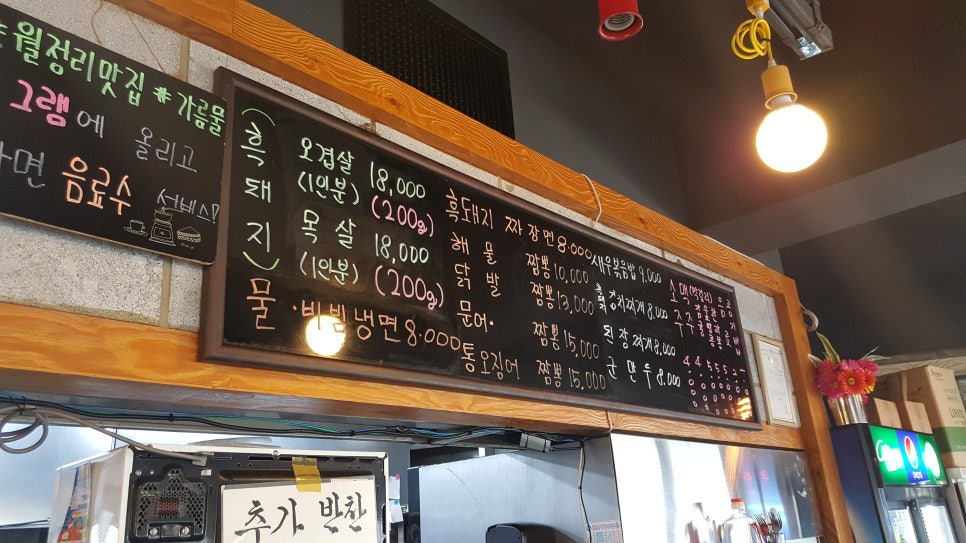 #월정리맛집 #가름물
그램에 올리고
면 음료수 서비스!
(흑돼지)
오겹살 18,000
(1인분) (200g)
목살 18,000
(1인분) (200g)
물·비빔냉면 8.000
흑돼지 짜장면 8.000
해물 짬뽕 10,000
닭발 짬뽕 13,000
문어· 짬뽕 15,000
통오징어 짬뽕 15,000
새우볶음밥 9,000
김치찌개 8,000
된장찌개 8,000
군만두 8,000
추가 반찬